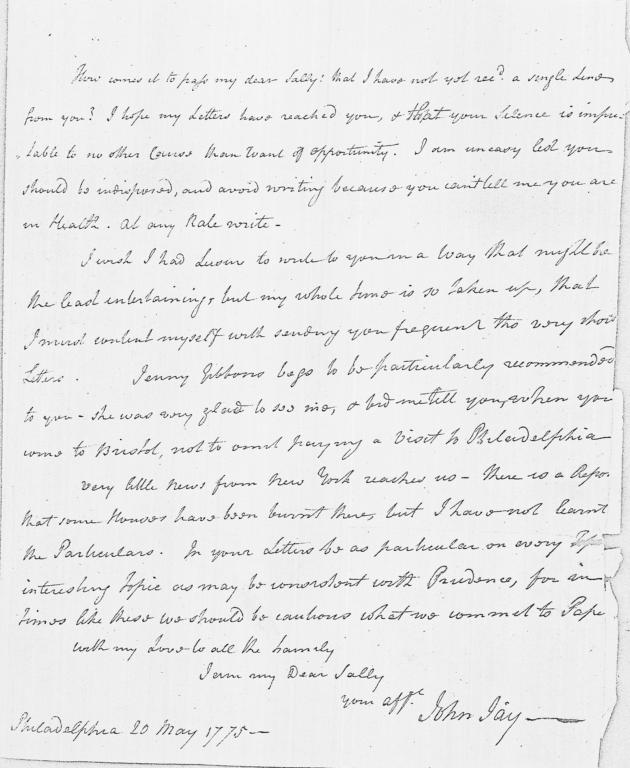 How comes it to pass my dear Sally! that I have not yet recd. a single Line
from you? I hope my Letters have reached you, & that your Silence is impu-
-table to no other Cause than Want of opportunity. I am uneasy lest you
should be indisposed, and avoid writing because you cant tell me you are
in Health. At any Rate write -
I wish I had Leisure to write to you in a Way that might be
the least entertaining, but my whole time is so taken up, that
I must content myself with sending you frequent tho very short
Letters. Jenny Gibbons begs to be particularly recommended
to you - she was very glad to see me, & bid me tell you, when you
come to Bristol, not to omit paying a Visit to Philadelphia
very little news from New York reaches us - there is a Repo
that some Houses have been burnt there, but I have not learnt
the Particulars. In your Letters be as particular on every
interesting topic as may be consistent with Prudence, for in
times like these we should be cautious what we commit to Pape
with my Love to all the family
I am my Dear Sally
your affte.
John Jay
Philadelphia 20 May 1775 -